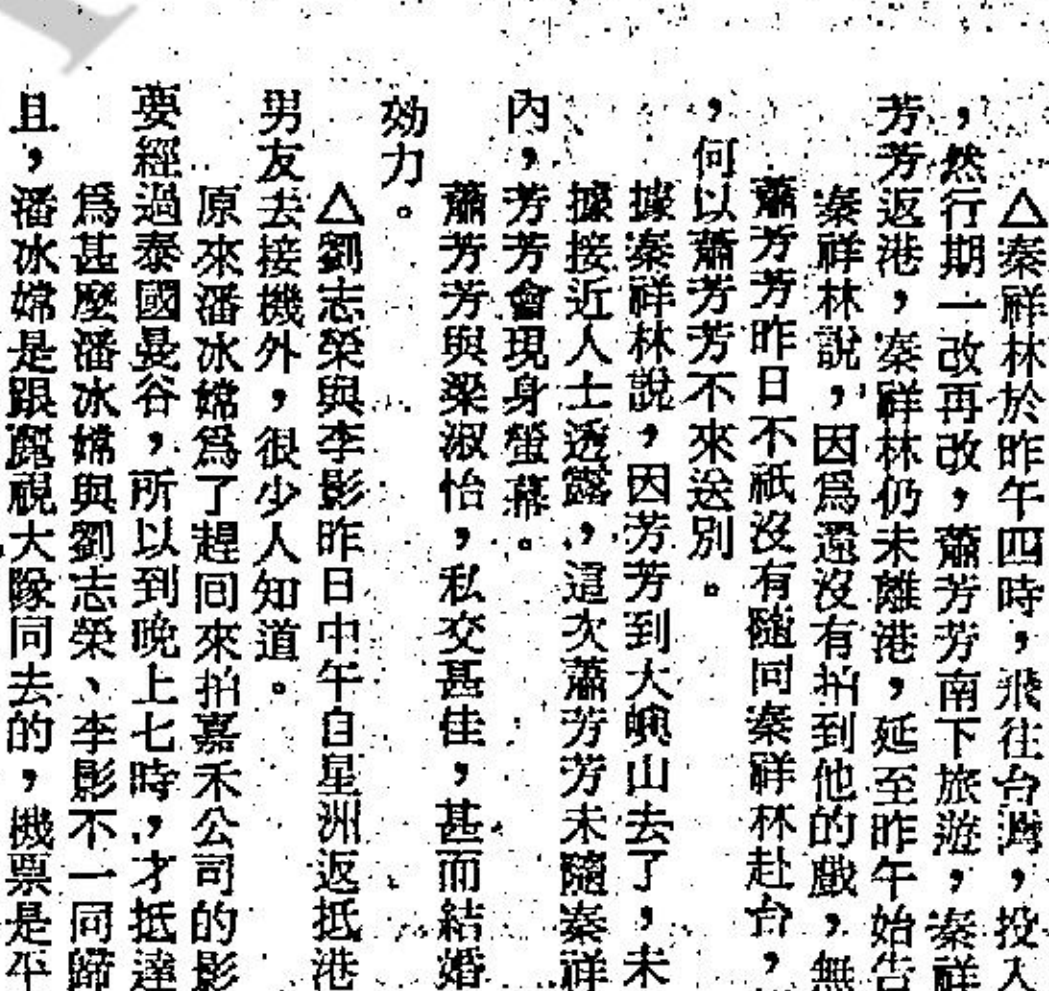 △秦祥林於昨午四時，飛往台灣，投入
，然行期一改再改，蕭芳芳南下旅遊，秦祥
芳芳返港，秦祥林仍未離港，延至昨午始告
秦祥林說，因爲還沒有拍到他的戲，無
蕭芳芳昨日不祇沒有隨同秦祥林赴台，
，何以蕭芳芳不來送別。
據秦祥林說，因芳芳到大嶼山去了，未
據接近人士透露，這次蕭芳芳未隨秦祥
內，芳芳會現身螢幕。
蕭芳芳與梁淑怡，私交甚佳，甚而結婚
効力。
△劉志榮與李影昨日中午自星洲返抵港
男友去接機外，很少人知道。
原來潘冰嫦爲了趕回來拍嘉禾公司的影
要經過泰國曼谷，所以到晚上七時，才抵達
爲甚麼潘冰嫦與劉志榮、李影不一同歸
且，潘冰嫦是跟麗視大隊同去的，機票是